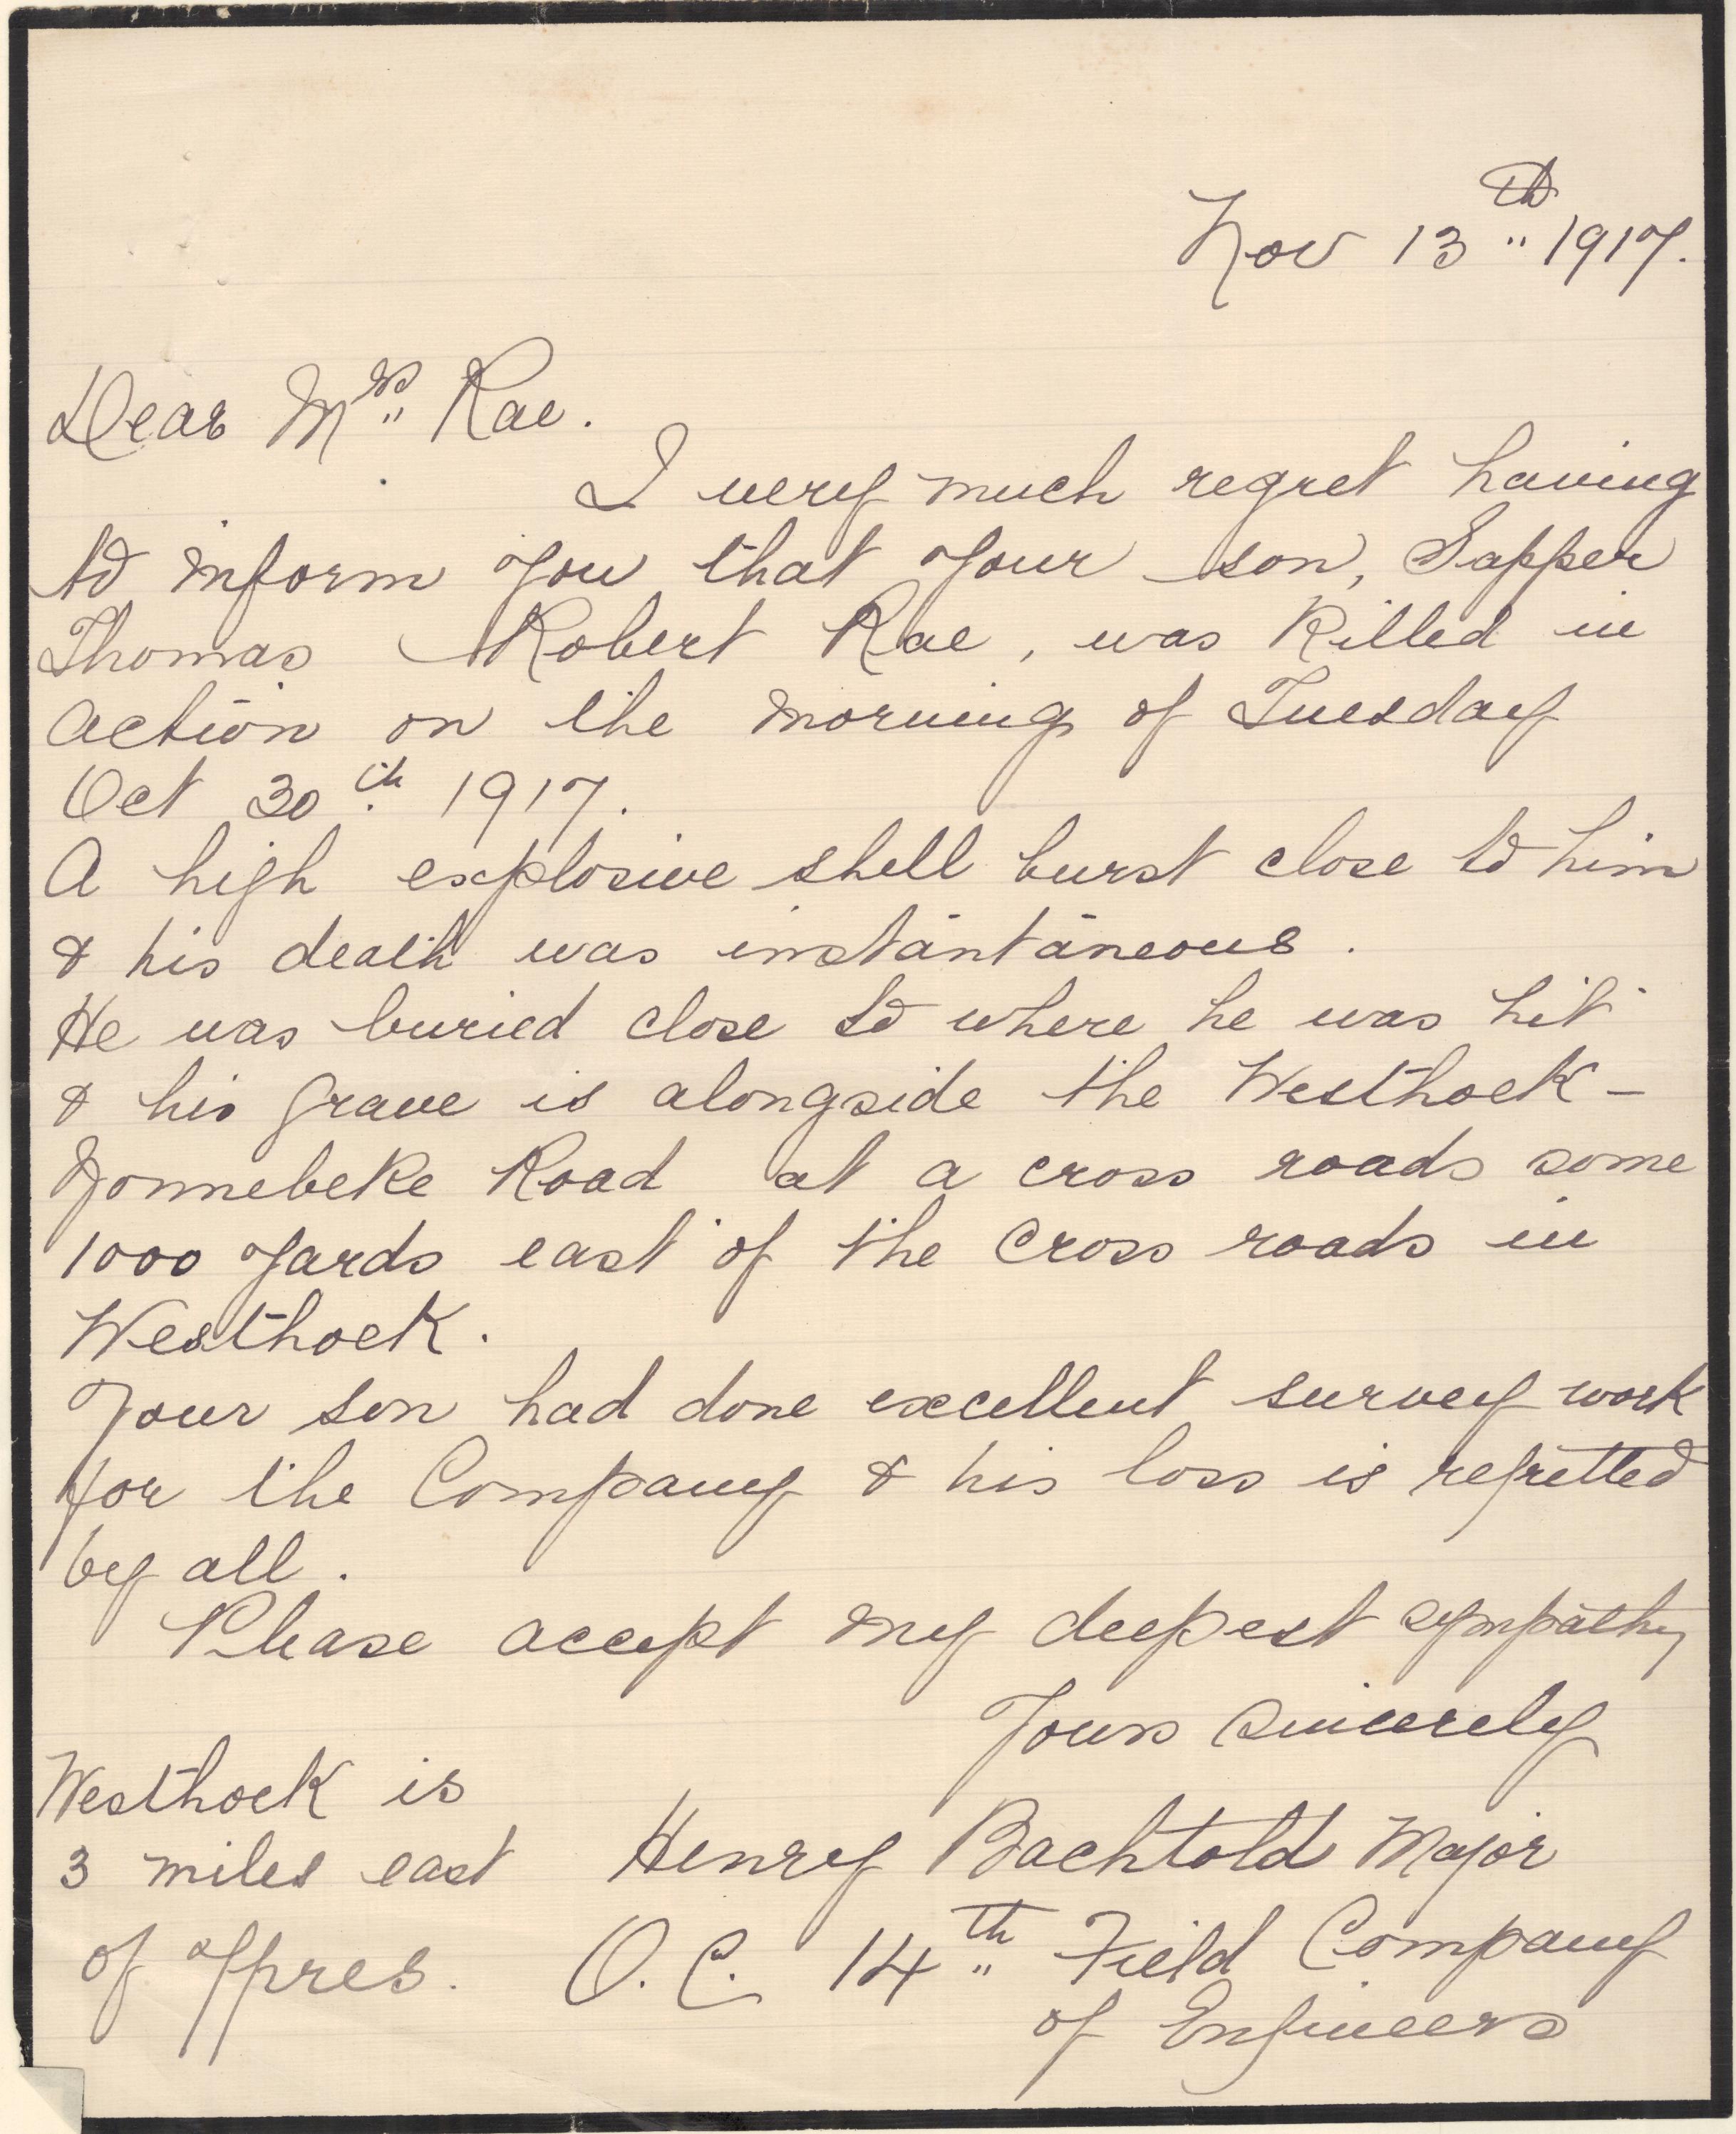 Nov 13th 1917.
Dear Mrs Rae.
I very much regret having
to inform you that your son, Sapper
Thomas Robert Rae, was killed in
action on the morning of Tuesday
Oct 30th 1917.
A high explosive shell burst close to him
& his death was instantaneous.
He was buried close to where he was hit
& his grave is alongside the Westhoek -
Zonnebeke Road at a cross roads some
1000 yards east of the cross roads in
Westhoek.
Your son had done excellent survey work
for the Company & his loss is regretted
by all.
Please accept my deepest sympathy
Yours sincerely
Henry Bachtold Major
O.C. 14th Field Company
of Engineers
Westhoek is
3 miles east
of Ypres.